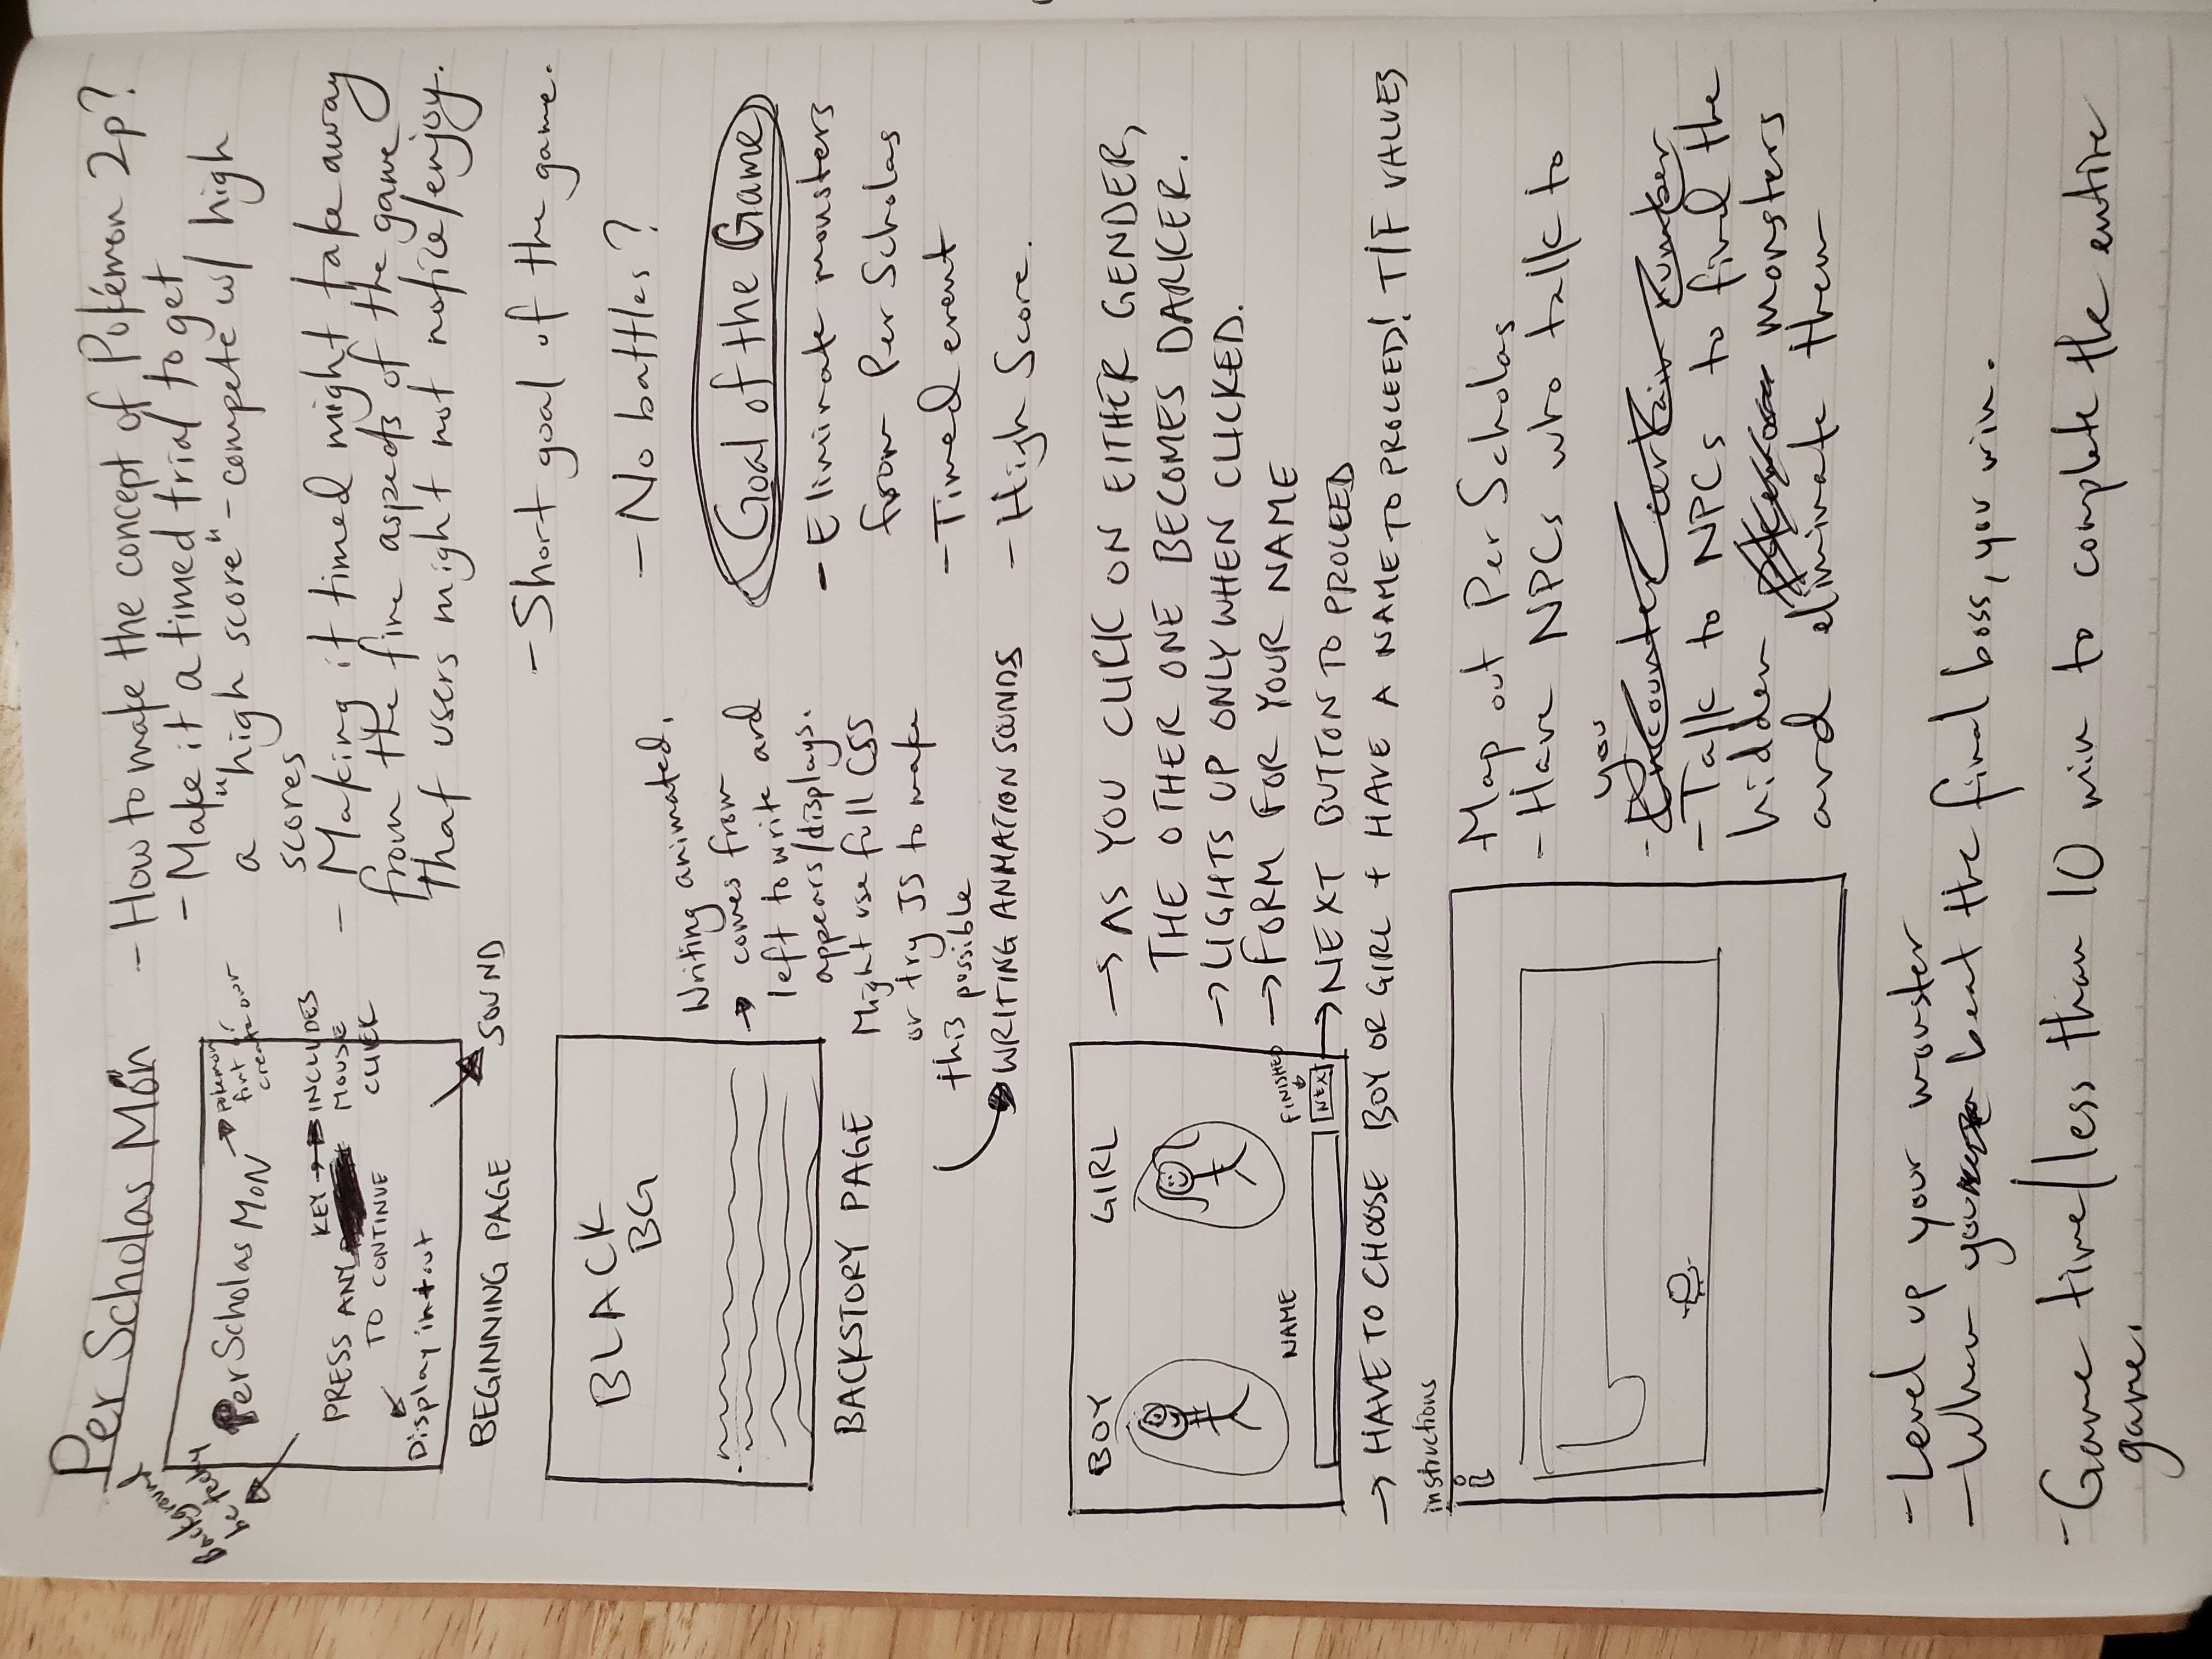 Per Scholas Mon
Background
be techy
Per Scholas MON
pokemon
font or
create our
KEY → INCLUDES
PRESS ANY MOUSE
TO CONTINUE CLICK
Display in + out
BEGINNING PAGE
SOUND
- How to make the concept of Pokémon 2p?
- Make it a timed trial to get
a "high score" - compete w/ high
scores
- Making it timed might take away
from the fine aspects of the game
that users might not notice/enjoy.
- Short goal of the game.
- No battles?
BLACK
BG
BACKSTORY PAGE
Writing animated,
→ comes from
left to write and
appears/displays.
Might use full CSS
or try JS to make
this possible
WRITING ANIMATION SOUNDS
Goal of the Game
- Eliminate monsters
from Per Scholas
- Timed event
- High Score.
BOY GIRL
NAME
FINISHED
NEXT
→ AS YOU CLICK ON EITHER GENDER,
THE OTHER ONE BECOMES DARKER.
→ LIGHTS UP ONLY WHEN CLICKED.
→ FORM FOR YOUR NAME
→ NEXT BUTTON TO PROCEED
→ HAVE TO CHOOSE BOY OR GIRL + HAVE A NAME TO PROCEED! T/F VALUES
instructions
i
Map out Per Scholas
- Have NPCs who talk to
you
- Encounter certain number
- Talk to NPCs to find the
hidden monsters
and eliminate them
- Level up your monster
- When you beat the final boss, you win.
- Game time/less than 10 min to complete the entire
game.